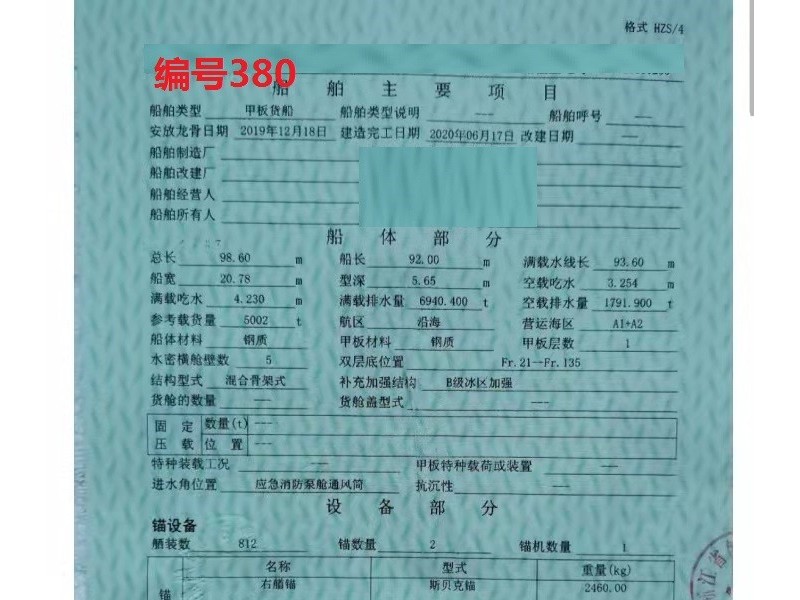 格式 HZS/4
编号380
船 舶 主 要 项 目
船舶类型 甲板货船 船舶类型说明 --- 船舶呼号 ---
安放龙骨日期 2019年12月18日 建造完工日期 2020年06月17日 改建日期 ---
船舶制造厂
船舶改建厂
船舶经营人
船舶所有人
船 体 部 分
总长 98.60 m 船长 92.00 m 满载水线长 93.60 m
船宽 20.78 m 型深 5.65 m 空载吃水 3.254 m
满载吃水 4.230 m 满载排水量 6940.400 t 空载排水量 1791.900 t
参考载货量 5002 t 航区 沿海 营运海区 A1+A2
船体材料 钢质 甲板材料 钢质 甲板层数 1
水密横舱壁数 5 双层底位置 Fr.21--Fr.135
结构型式 混合骨架式 补充加强结构 B级冰区加强
货舱的数量 --- 货舱盖型式 ---
固 定 数量(t) ---
压 载 位 置 ---
特种装载工况 --- 甲板特种载荷或装置 ---
进水角位置 应急消防泵舱通风筒 抗沉性 ---
设 备 部 分
锚设备
舾装数 812 锚数量 2 锚机数量 1
名称 型式 重量(kg)
锚 右艏锚 斯贝克锚 2460.00
江省